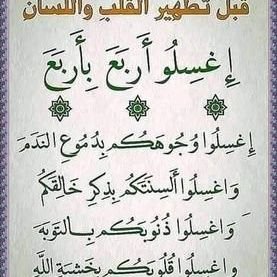 قبل تطهير القلب واللسان
إغسلو أربع بأربع
إغسلوا وجوهكم بدموع الندم
واغسلوا ألسنتكم بذكر خالقكم
واغسلوا ذنوبكم بالتوبه
واغسلوا قلوبكم بخشية الله